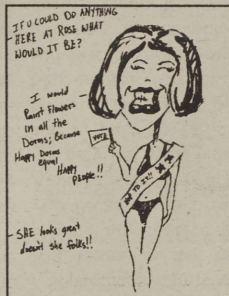 - IF U COULD DO ANYTHING
HERE AT ROSE WHAT
WOULD IT BE?
I would
Paint Flowers
in all the
Dorms; Because
Happy Dorms
equal
Happy
people!!
VOTE
TO IT!!
- SHE looks great
doesn't she folks!!